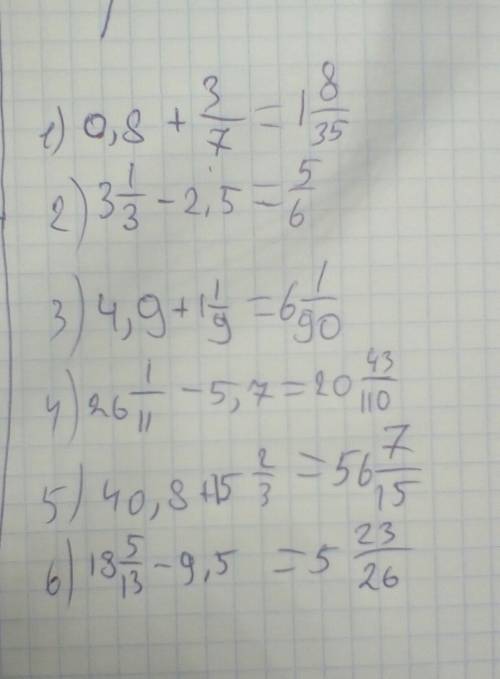 1) 0,8 + 3/7 = 1 8/35
2) 3 1/3 - 2,5 = 5/6
3) 4,9 + 1 1/9 = 6 1/90
4) 26 1/11 - 5,7 = 20 43/110
5) 40,8 + 15 2/3 = 56 7/15
6) 18 5/13 - 9,5 = 5 23/26